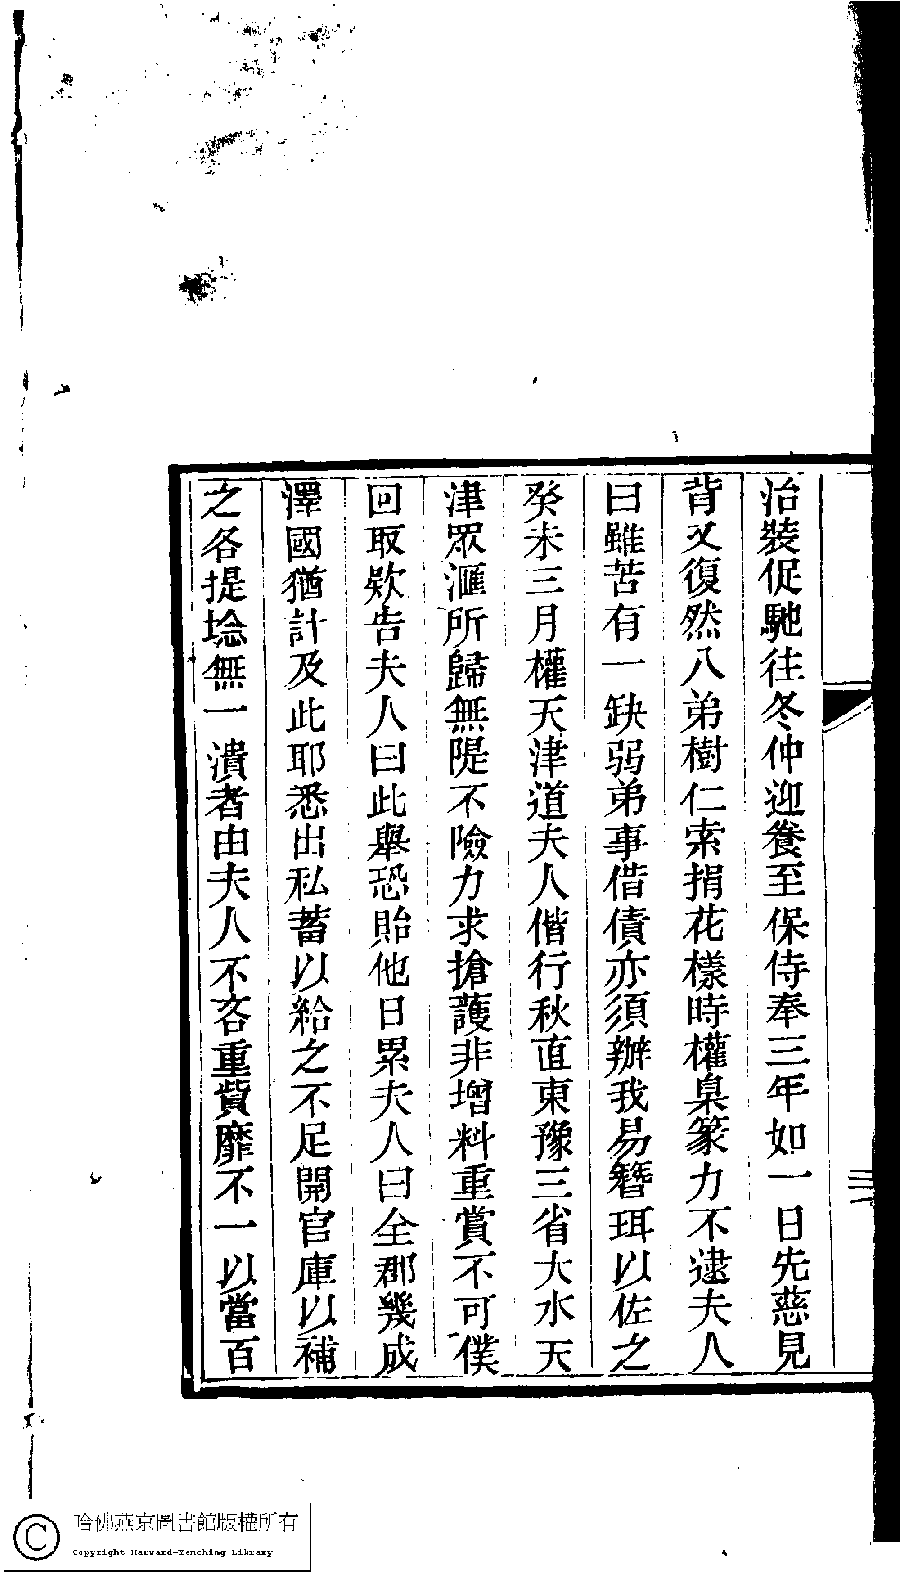 治裝促馳往冬仲迎養至保侍奉三年如一日先慈見
背又復然八弟樹仁索捐花樣時權臬篆力不逮夫人
曰雖苦有一缺弱弟事借債亦須辦我易簪珥以佐之
癸未三月權天津道夫人偕行秋直東豫三省大水天
津眾滙所歸無隄不險力求搶護非增料重賞不可僕
回取欵告夫人曰此舉恐貽他日累夫人曰全郡幾成
澤國猶計及此耶悉出私蓄以給之不足開官庫以補
之各提埝無一潰者由夫人不吝重貲靡不一以當百
三
哈佛燕京圖書館版權所有
Copyright Harvard-Yenching Library